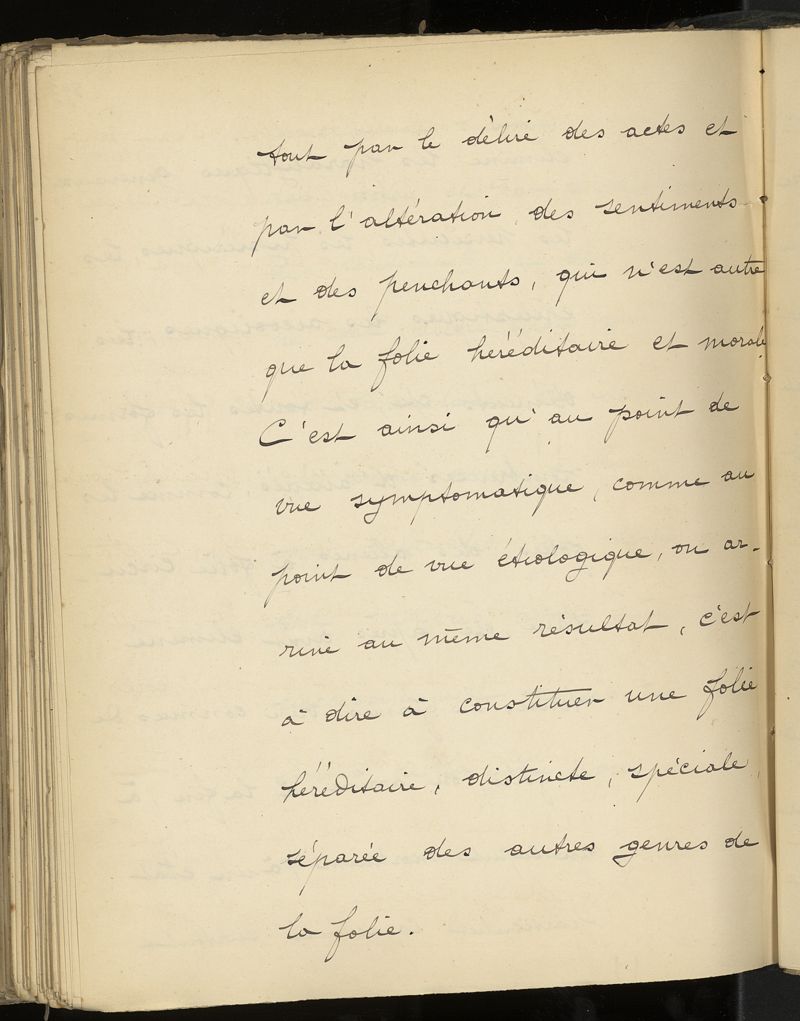 tout par le délire des actes et
par l'altération des sentiments
et des penchants, qui n'est autre
que la folie héréditaire et morale
C'est ainsi qu'au point de
vue symptomatique, comme au
point de vue étiologique, on ar-
rive au même résultat, c'est
à dire à constituer une folie
héréditaire, distincte, spéciale,
séparée des autres genres de
la folie.